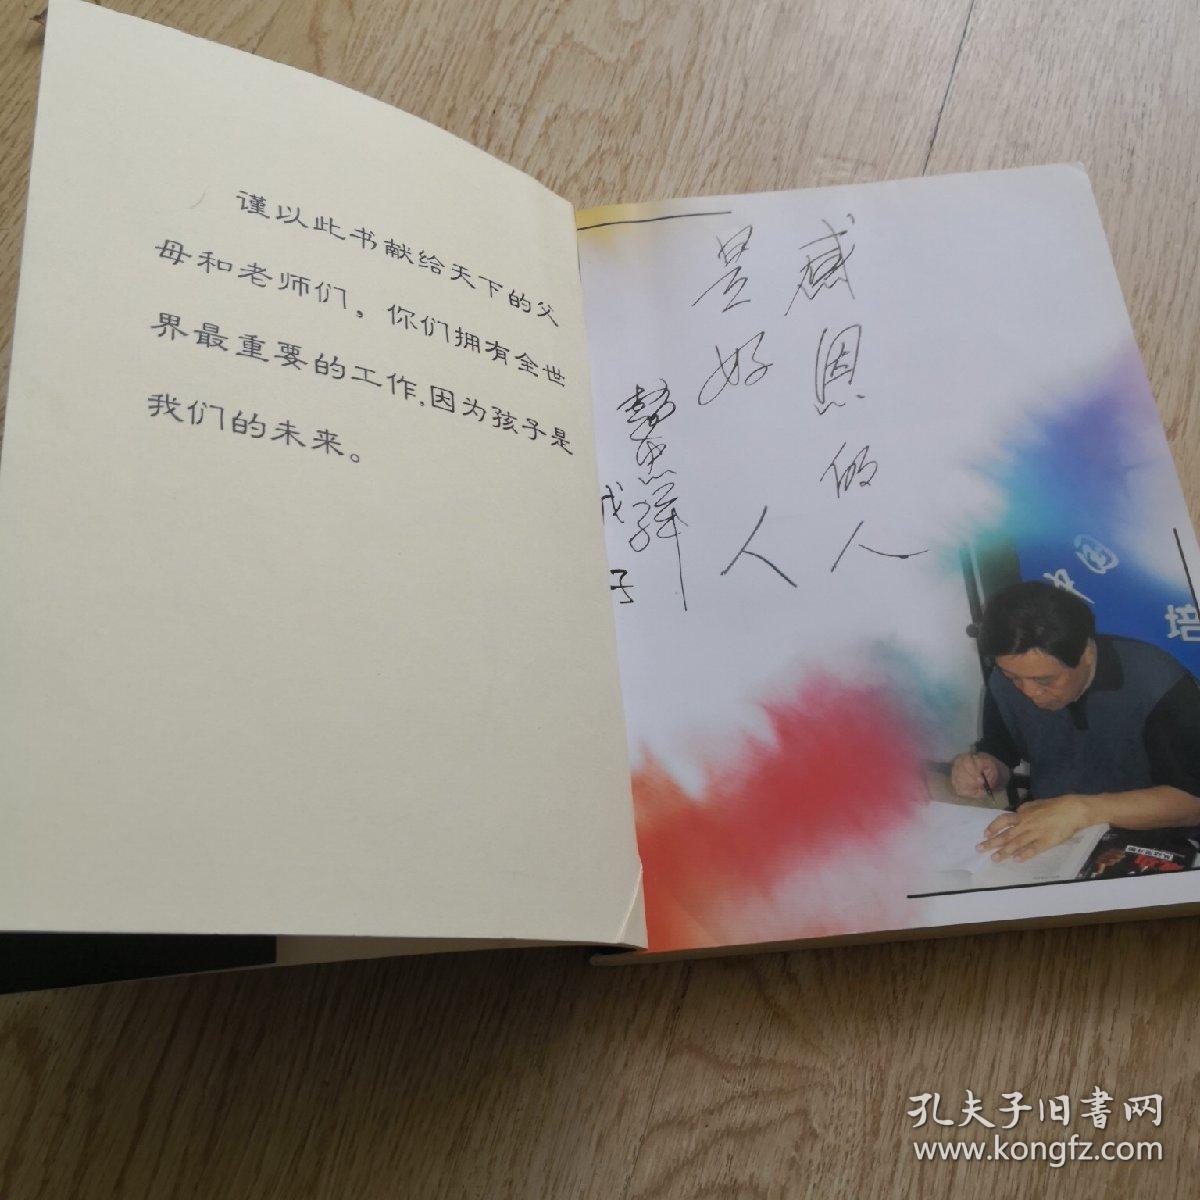 谨以此书献给天下的父
母和老师们，你们拥有全世
界最重要的工作，因为孩子是
我们的未来。
感恩的人
是好人
戊子
培
孔夫子旧書网
www.kongfz.com